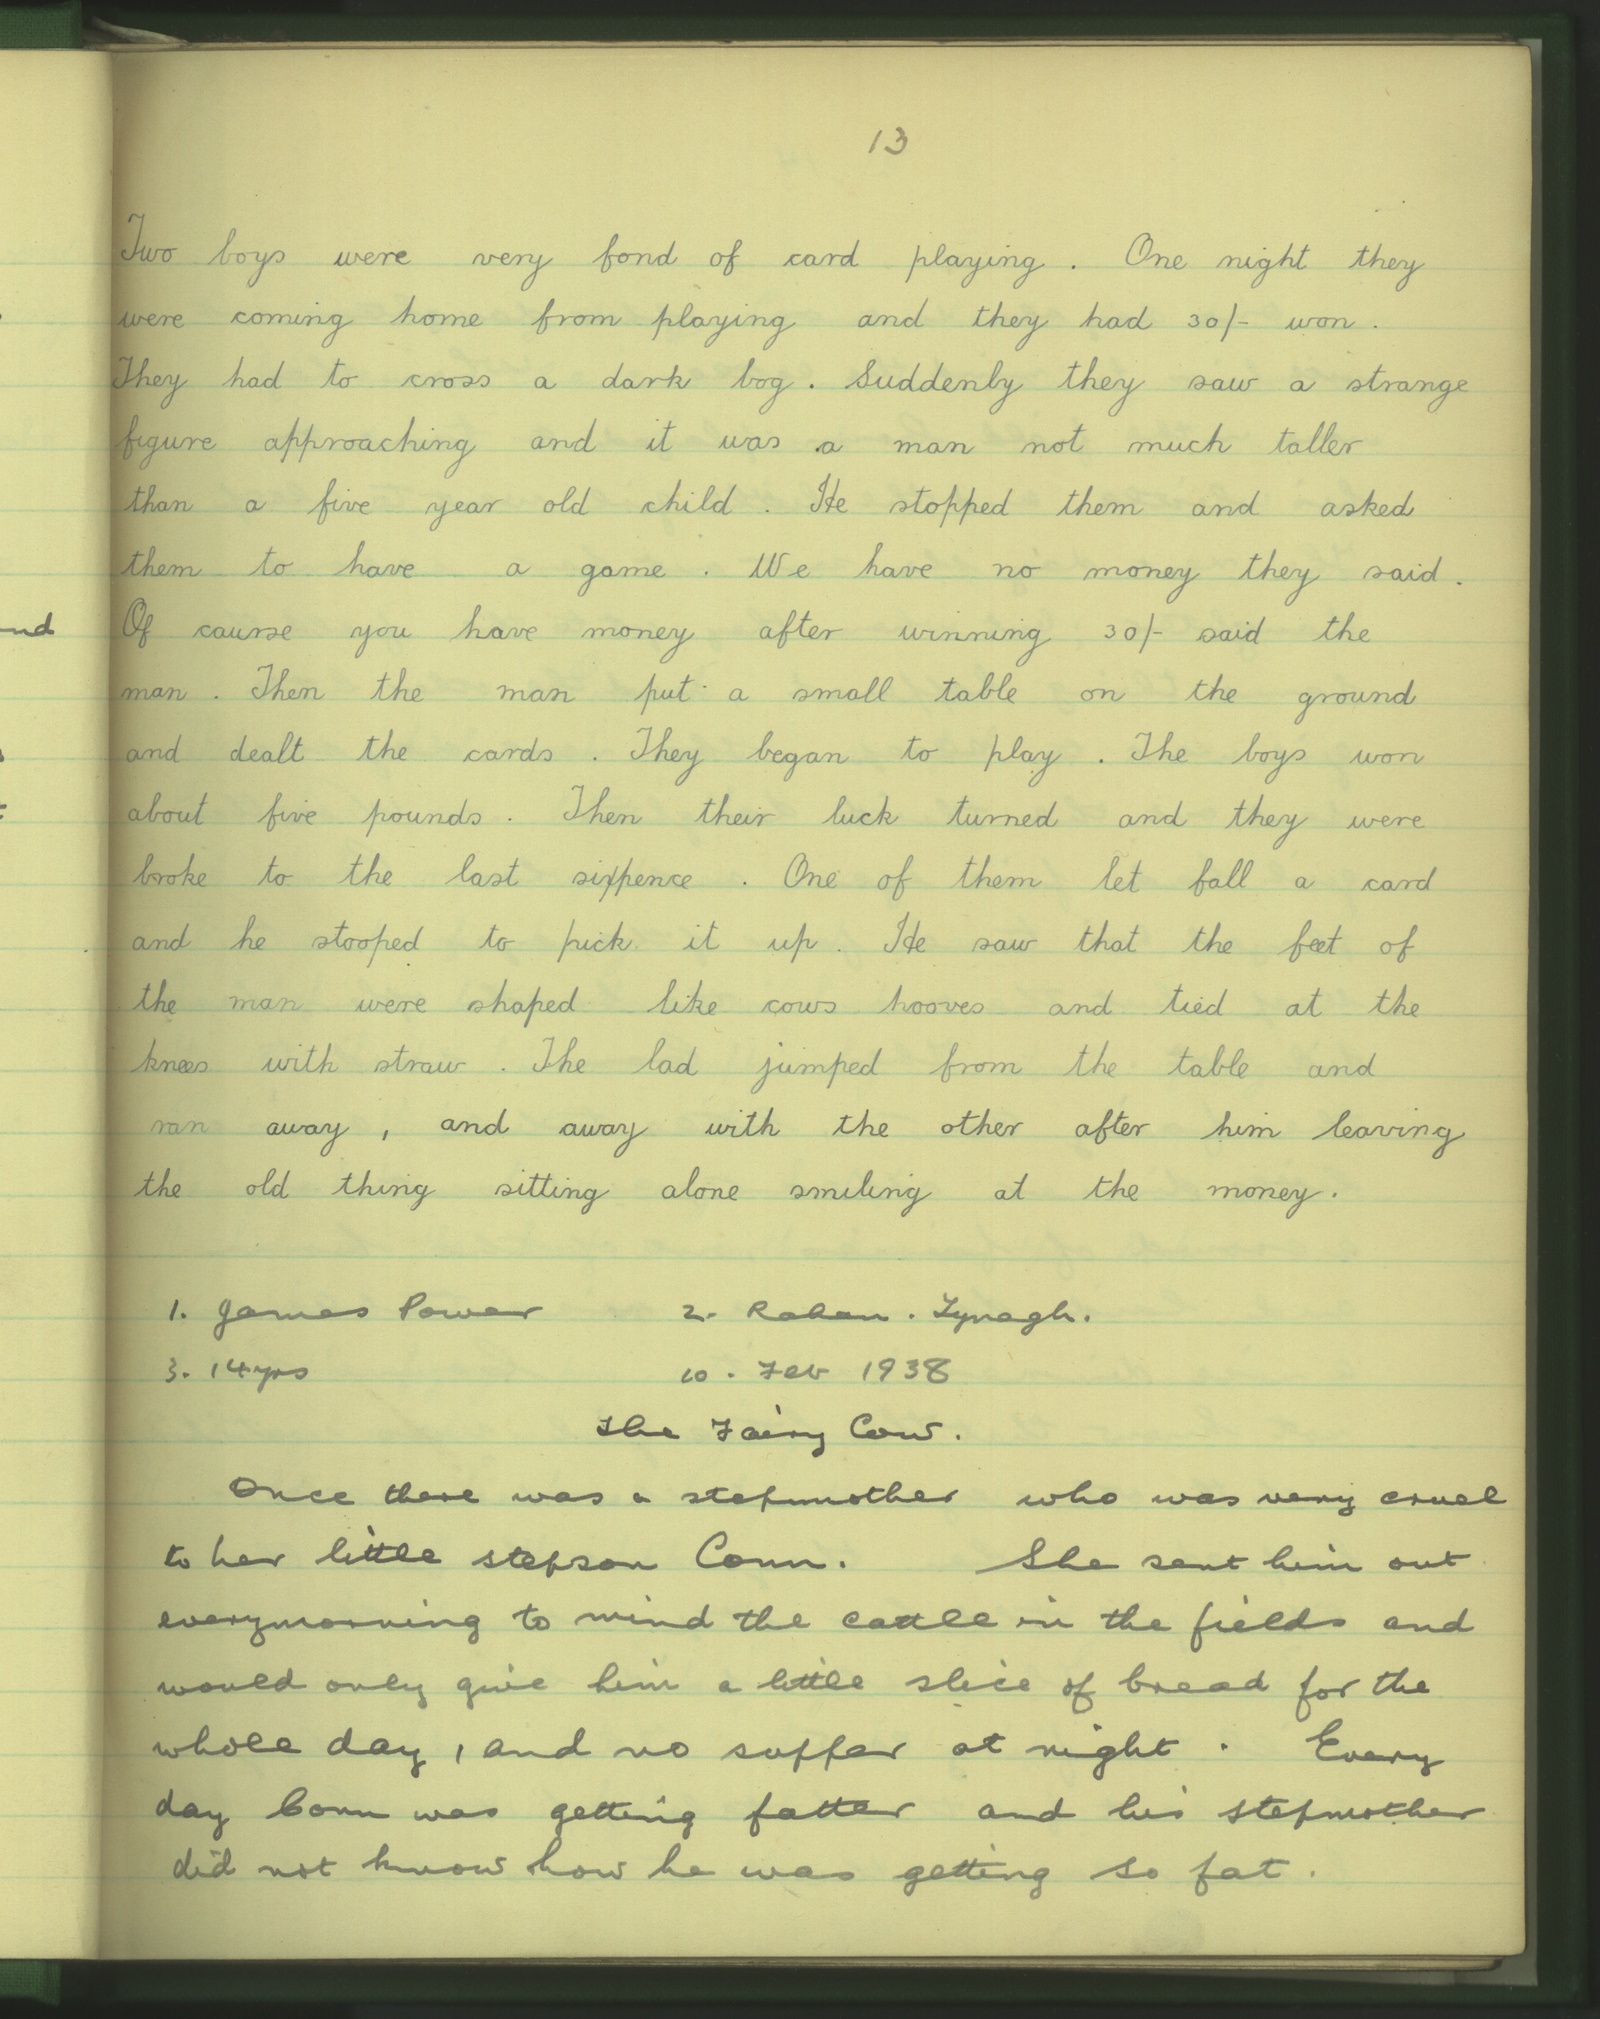 13
Two boys were very fond of card playing. One night they
were coming home from playing and they had 30/- won.
They had to cross a dark bog. Suddenly they saw a strange
figure approaching and it was a man not much taller
than a five year old child. He stopped them and asked
them to have a game. We have no money they said.
Of caurse you have money after winning 30/- said the
man. Then the man put a small table on the ground
and dealt the cards. They began to play. The boys won
about five pounds. Then their luck turned and they were
broke to the last sixpence. One of them let fall a card
and he stooped to pick it up. He saw that the feet of
the man were shaped like cows hooves and tied at the
knees with straw. The lad jumped from the table and
ran away, and away with the other after him leaving
the old thing sitting alone smiling at the money.
1. James Power 2. Rahan. Tynagh.
3. 14 yrs 10. Feb 1938
The Fairy Cow.
Once there was a stepmother who was very cruel
to her little stepson Conn. She sent him out
everymorning to mind the cattle in the fields and
would only give him a little slice of bread for the
whole day, and no supper at night. Every
day Conn was getting fatter and his stepmother
did not know how he was getting so fat.
nd